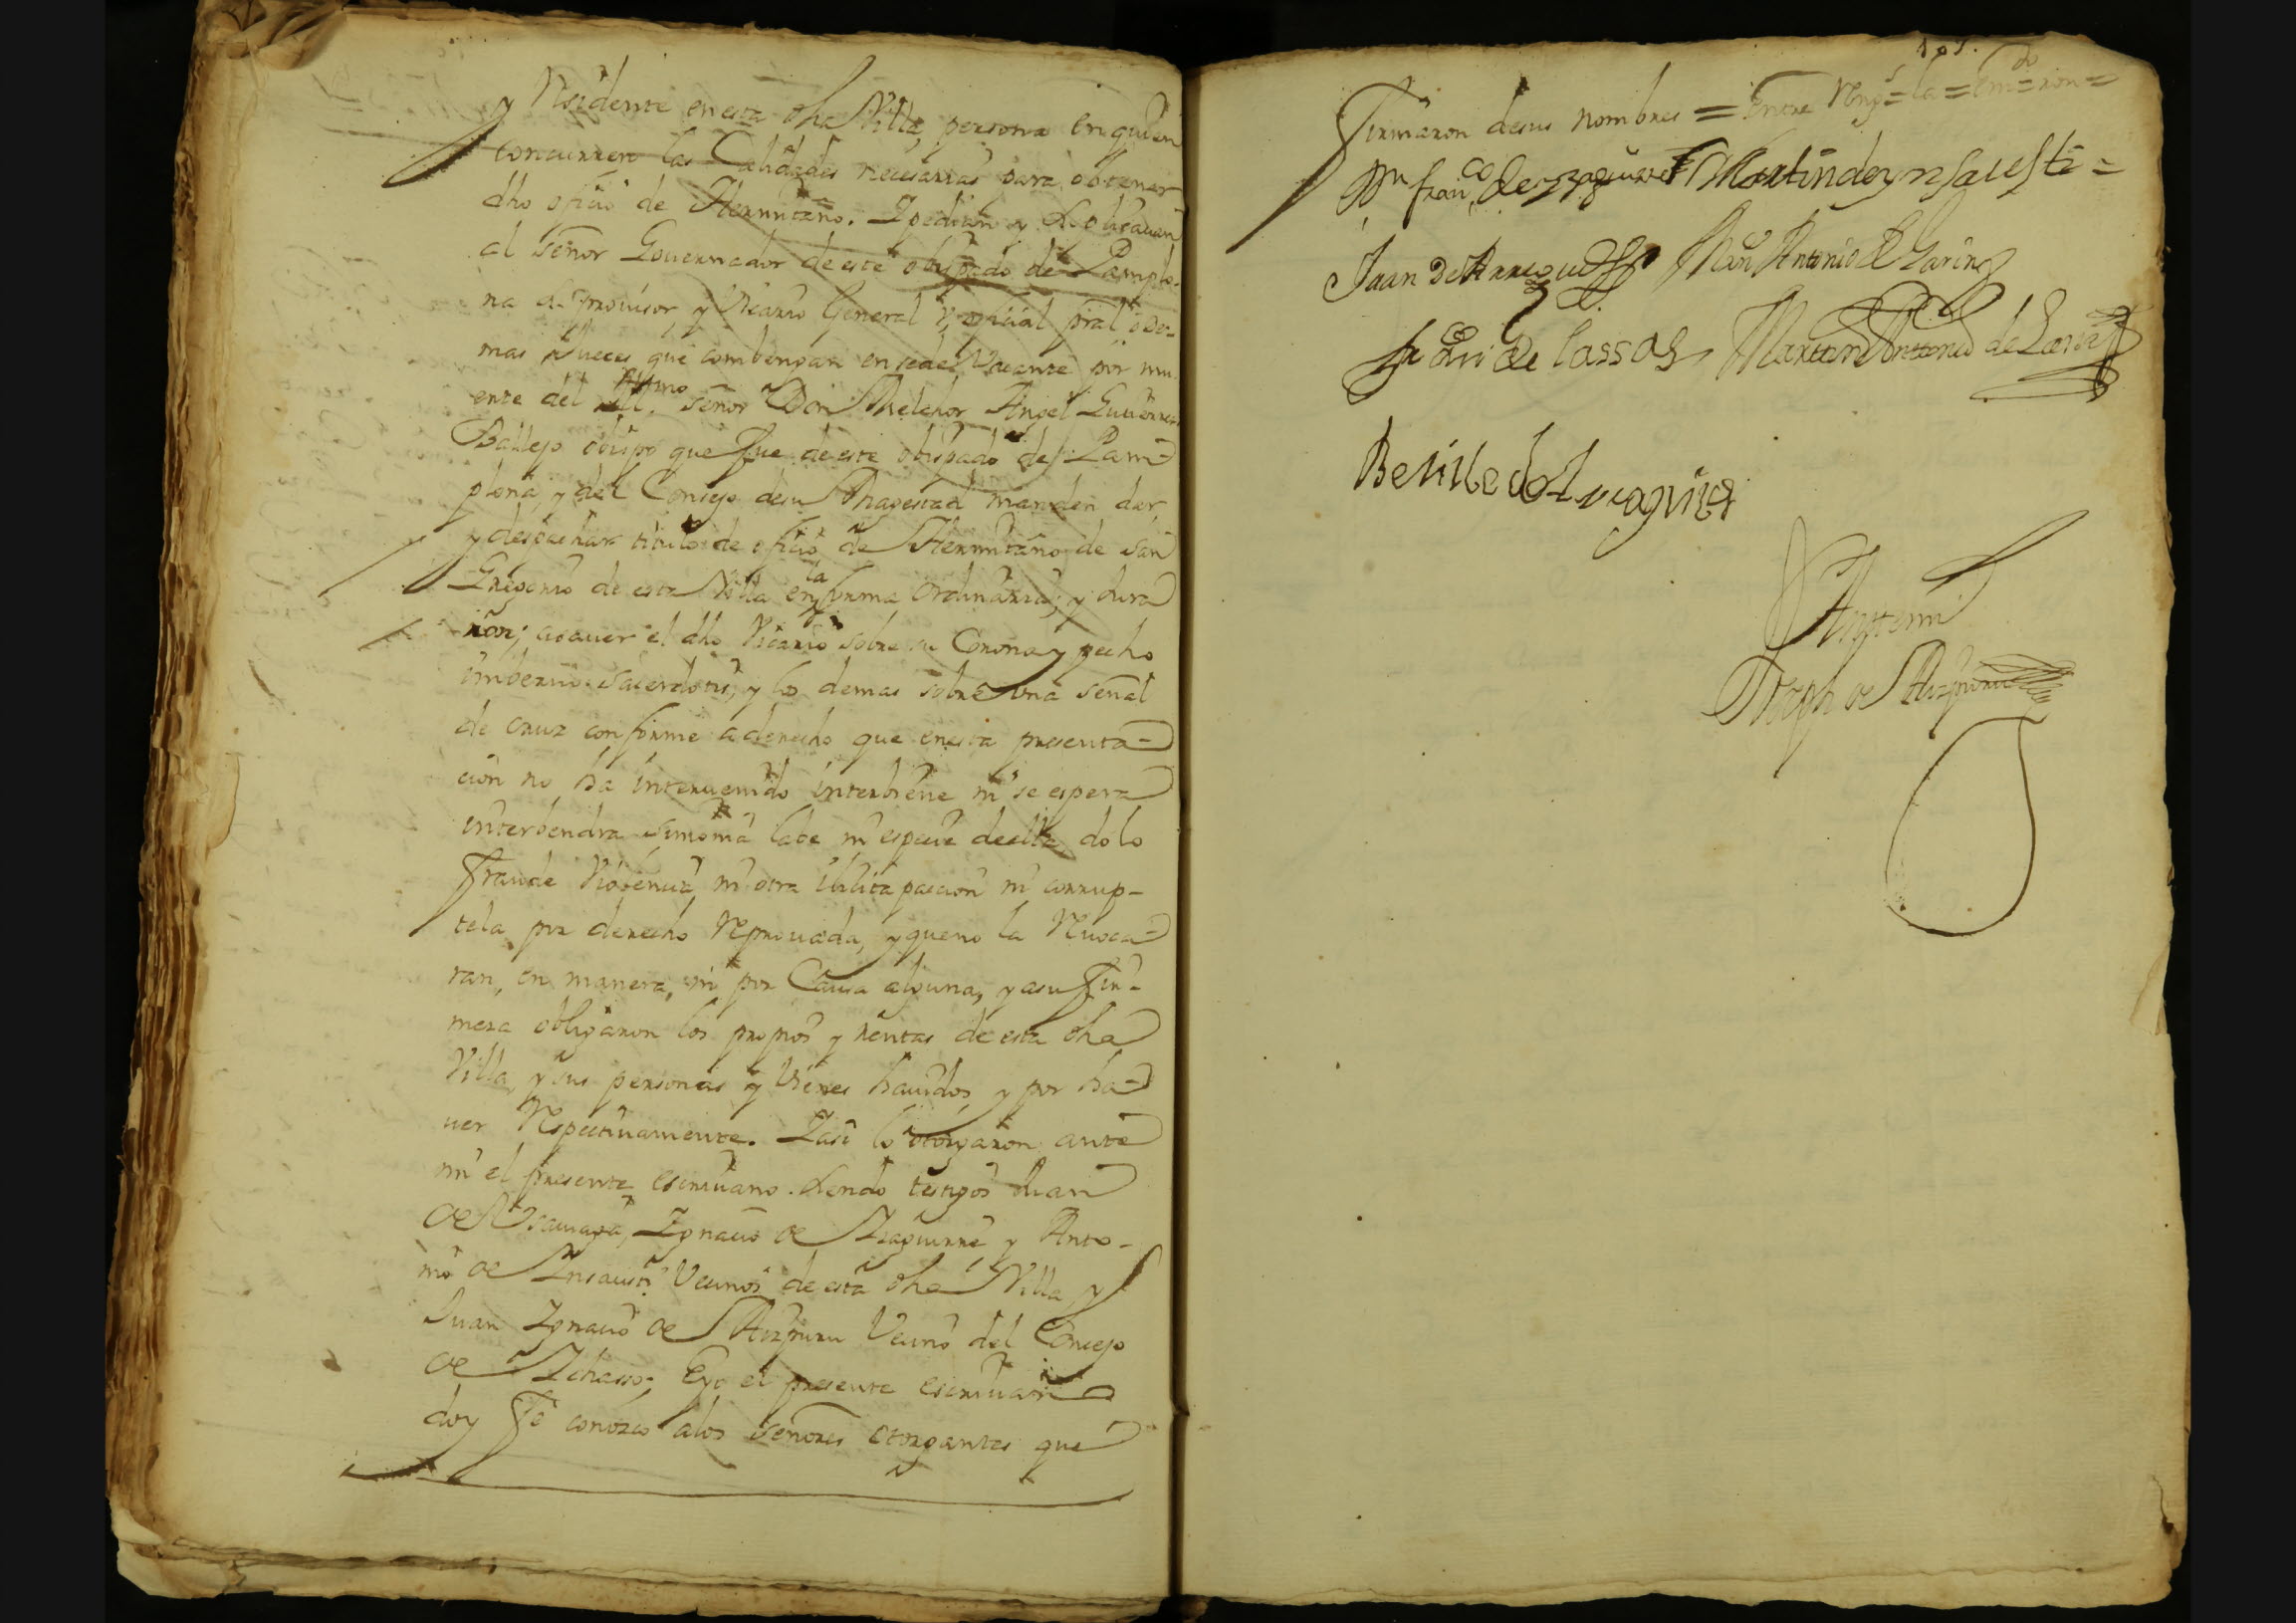 y Residente en esta dha Villa, persona en quien
concurren las Calidades necesarias para obtener
dho oficio de Hermitaño. Y pedian y Suplicauan
al señor Gouernador de este obispado de Pamplo-
na su prouisor y Vicario General y oficial pral o de-
mas Jueces que combengan en sede Vacante por mu-
erte del Illmo señor Don Melchor Angel Gutierrez
Ballejo obispo que fue de este obispado de Pam-
plona, y del Consejo de su Magestad manden dar
y despachar titulo de oficio de Hermitaño de San
Gregorio de esta Villa en la forma Ordinaria; y Jura
ron; asauer el dho Vicario sobre su Corona y pecho
imberuo Sacerdotis, y los demas sobre vna señal
de cruz conforme a derecho que en esta presenta-
cion no ha interuenido interbiene ni se espera
interbendra simonia labe ni especie de ella, dolo
fraude Violencia, ni otra ilicita paccion ni corrup-
tela por derecho Reprouada, y que no la Reuoca-
ran, en manera, ni por Causa alguna, y a su fir-
meza obligaron los propios y rentas de esta dha
Villa, y sus personas y vienes hauidos, y por ha-
uer Respectiuamente. Y asi lo otorgaron ante
mi el presente escriuano siendo testigos Juan
de Ygnacio de Yzaguirre y Anto-
nio de Ynsausti Vecinos de esta dha Villa y
Juan Ygnacio de Aizpuru Vecino del Concejo
de Ichasso; E yo el presente escriuano
doy fe conozco a los señores otorgantes que
105.
firmaron de sus nombres = entre Reng.s = la = em.do = ron =
Dn franco de yzaguirre Martin de ynsausti =
Juan De Man Antonio de Larina
de Lassa Martin Antonio de Larza
Ante mi
Joseph de Aizpuru